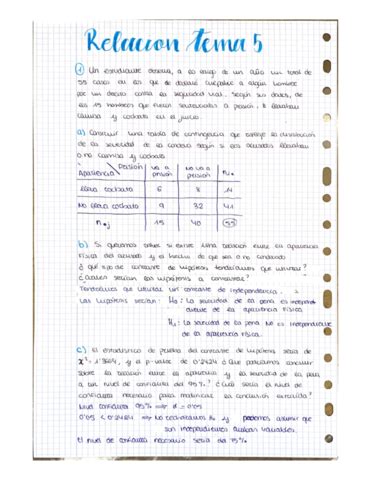 Relacion tema 5
① Un estudiante observa, a lo largo de un año un total de
55 casos en los que se declaró culpable a algún hombre
por un delito contra la seguridad vial. Según sus datos, de
los 15 hombres que fueron sentenciados a prisión, 6 llevaban
camisa y corbata en el juicio.
a) Construir una tabla de contingencia que refleje la distribución
de la severidad de la condena según si los acusados llevaban
o no camisa y corbata
Apariencia Prisión va a prisión no va a prisión ni.
lleva corbata 6 8 14
No lleva corbata 9 32 41
n.j 15 40 55
b) Si queremos saber si existe una relación entre la apariencia
física del acusado y el hecho de que sea o no condenado
¿qué tipo de contraste de hipótesis tendríamos que
¿Cuáles serían las hipótesis a contrastar?
Tendríamos que utilizar un contraste de independencia.
Las hipótesis serían: H₀: La severidad de la pena es independi
ente de la apariencia física.
H₁: La severidad de la pena NO es independiente
de la apariencia física.
c) El estadístico de prueba del contraste de hipótesis sería de
y el p-valor de 0'2424 ¿Qué podríamos concluir
sobre la relación entre la apariencia y la severidad de la pena
a un nivel de confianza del 95%? ¿Cuál sería el nivel de
confianza necesario para modificar la conclusión extraída?
Nivel confianza 95% ⟹ α = 0'05
⟹ No rechazamos H₀ y podemos asumir que
son independientes ambas variables.
El nivel de confianza necesario sería del 75%